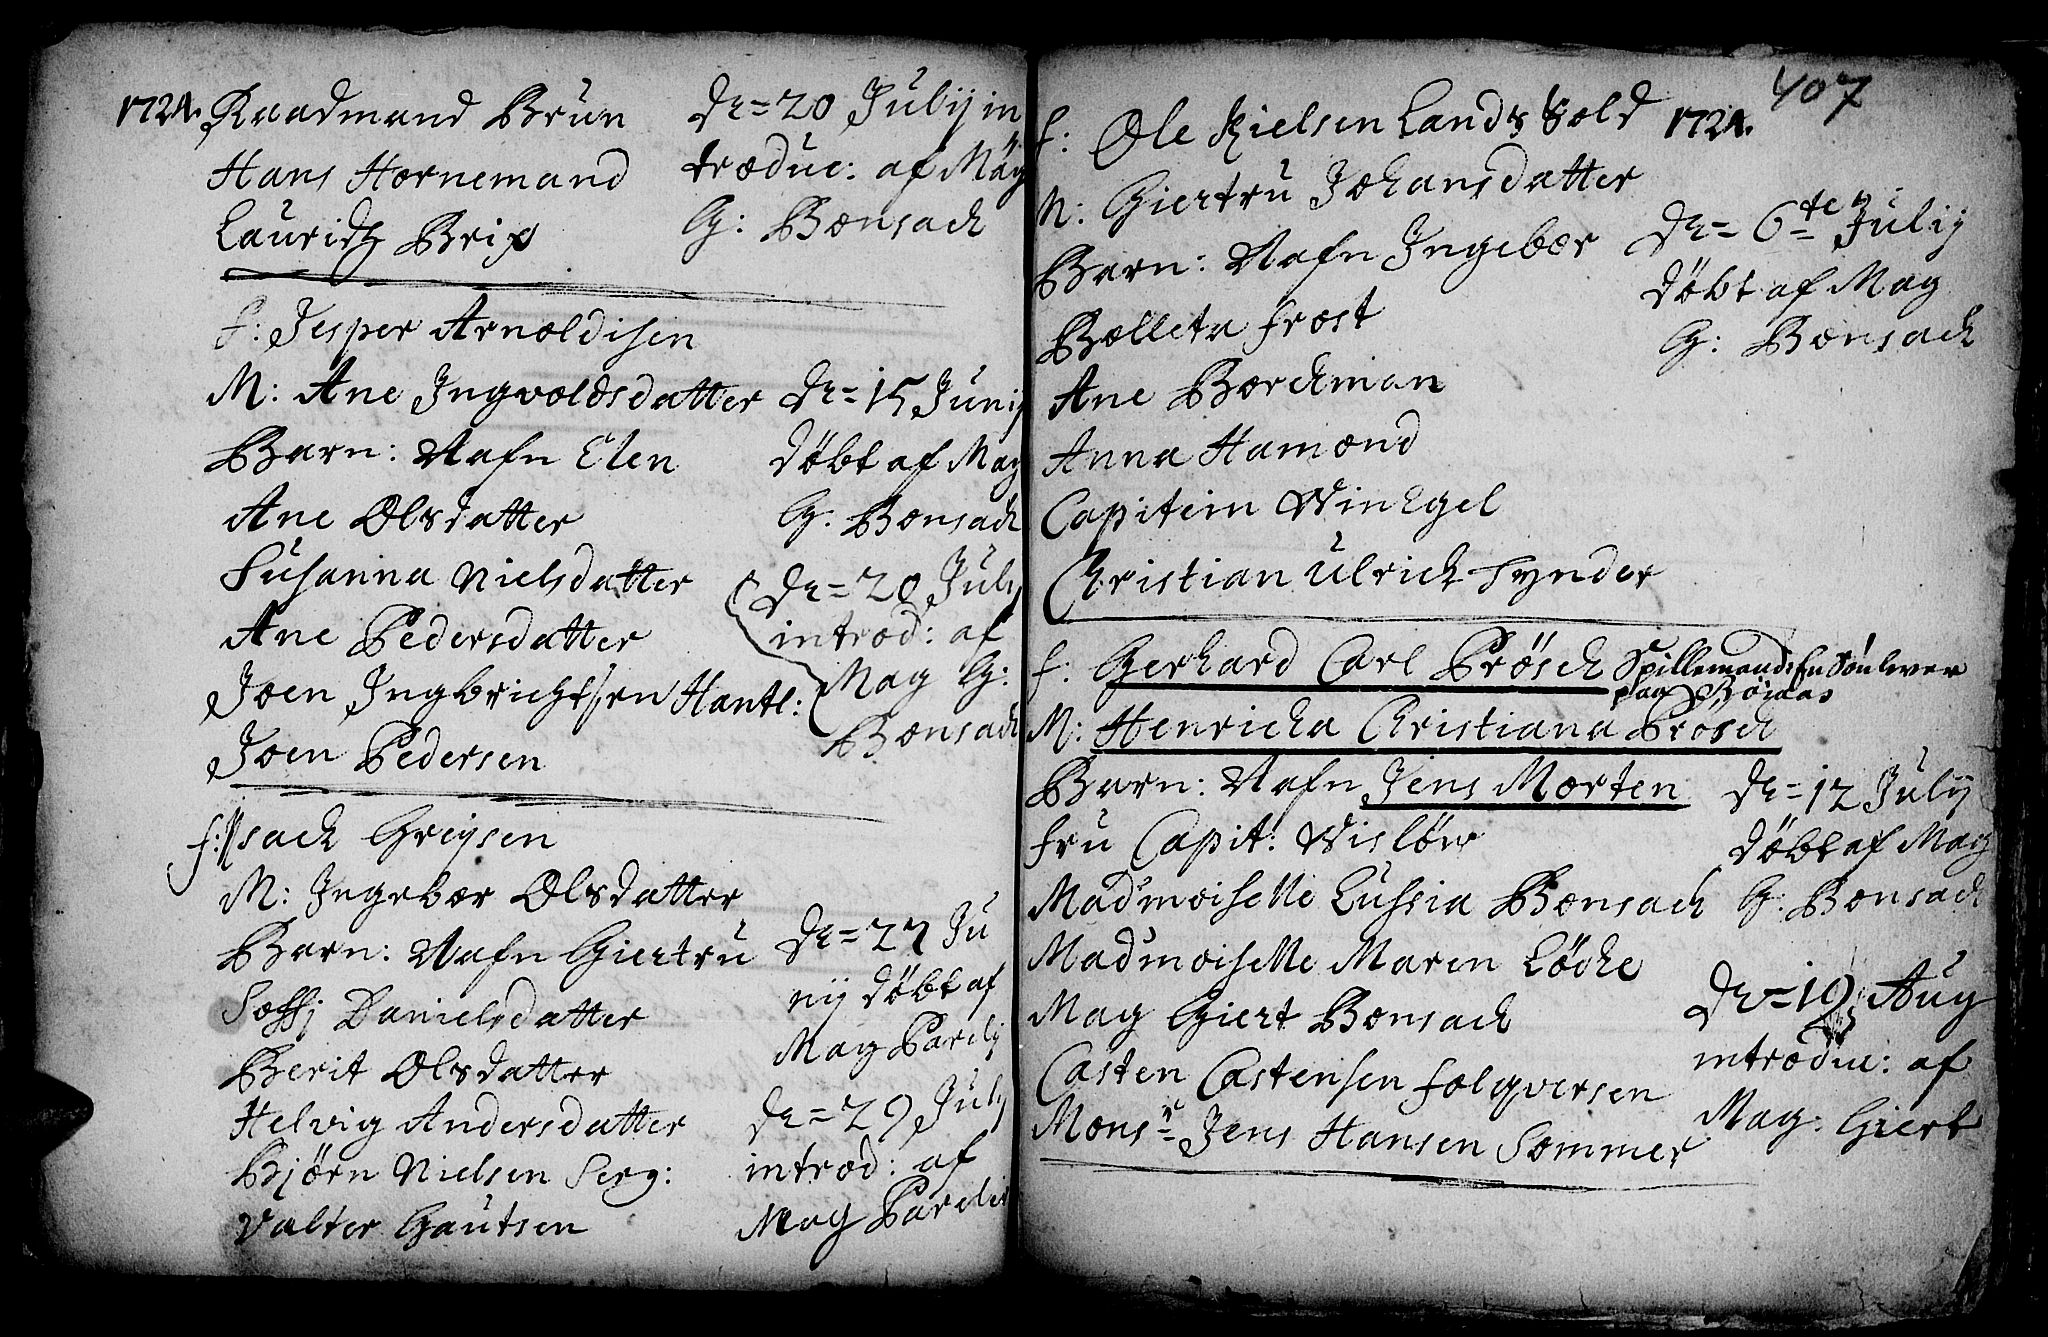 1724. Raadmand Brun
Hans Hornemand
Lauridz Brix
dn= 20 Julij in
troduc: af Mag
G: Bonsach
f: Jesper Arnoldisen
M: Ane Ingvoldsdatter
Barn: Nafn Elen
Ane Olsdatter
Susanna Nielsdatter
Ane Pedersdatter
Joen Ingbrichtsen Hantl:
Joen Pedersen
dn= 15 Junij
døbt af Mag
G. Bonsach
dn= 20 July
introd: af
Mag G:
Bonsach
f: Isach Greysen
M: Ingebor Olsdatter
Barn: Nafn Giertru
Soffj Danielsdatter
Berit Olsdatter
Helvig Andersdatter
Bjørn Nielsen Serg:
Valter Gautsen
dn= 27 Ju
nij døbt af
Mag Parelj
dn= 29 July
introd: af
Mag Parelij
407
f: Ole Kielsen Lands Sold 1724.
M: Giertru Johansdatter
Barn: Nafn Ingebor
Bolleta Frost
Ane Borchman
Anna Hamond
Capitein Winkgel
Christian Ulrich Synder
dn= 6te Julij
døbt af Mag
G: Bonsach
f: Gerhard Carl Prösch Spillemand En Søn lever
paa Røraas
M: Henricka Christiana Prosch
Barn: Nafn Jens Morten
Fru Capit: Wisløw
Madmoiselle Lussia Bonsach
Madmoiselle Maren Løcke
Mag Giert Bonsach
Casten Castensen Folqversen
Monsr Jens Hansen Sommer
dn= 12 Julij
døbt af Mag
G: Bonsach
dn= 19 Aug
introduc: af
Mag: Giert